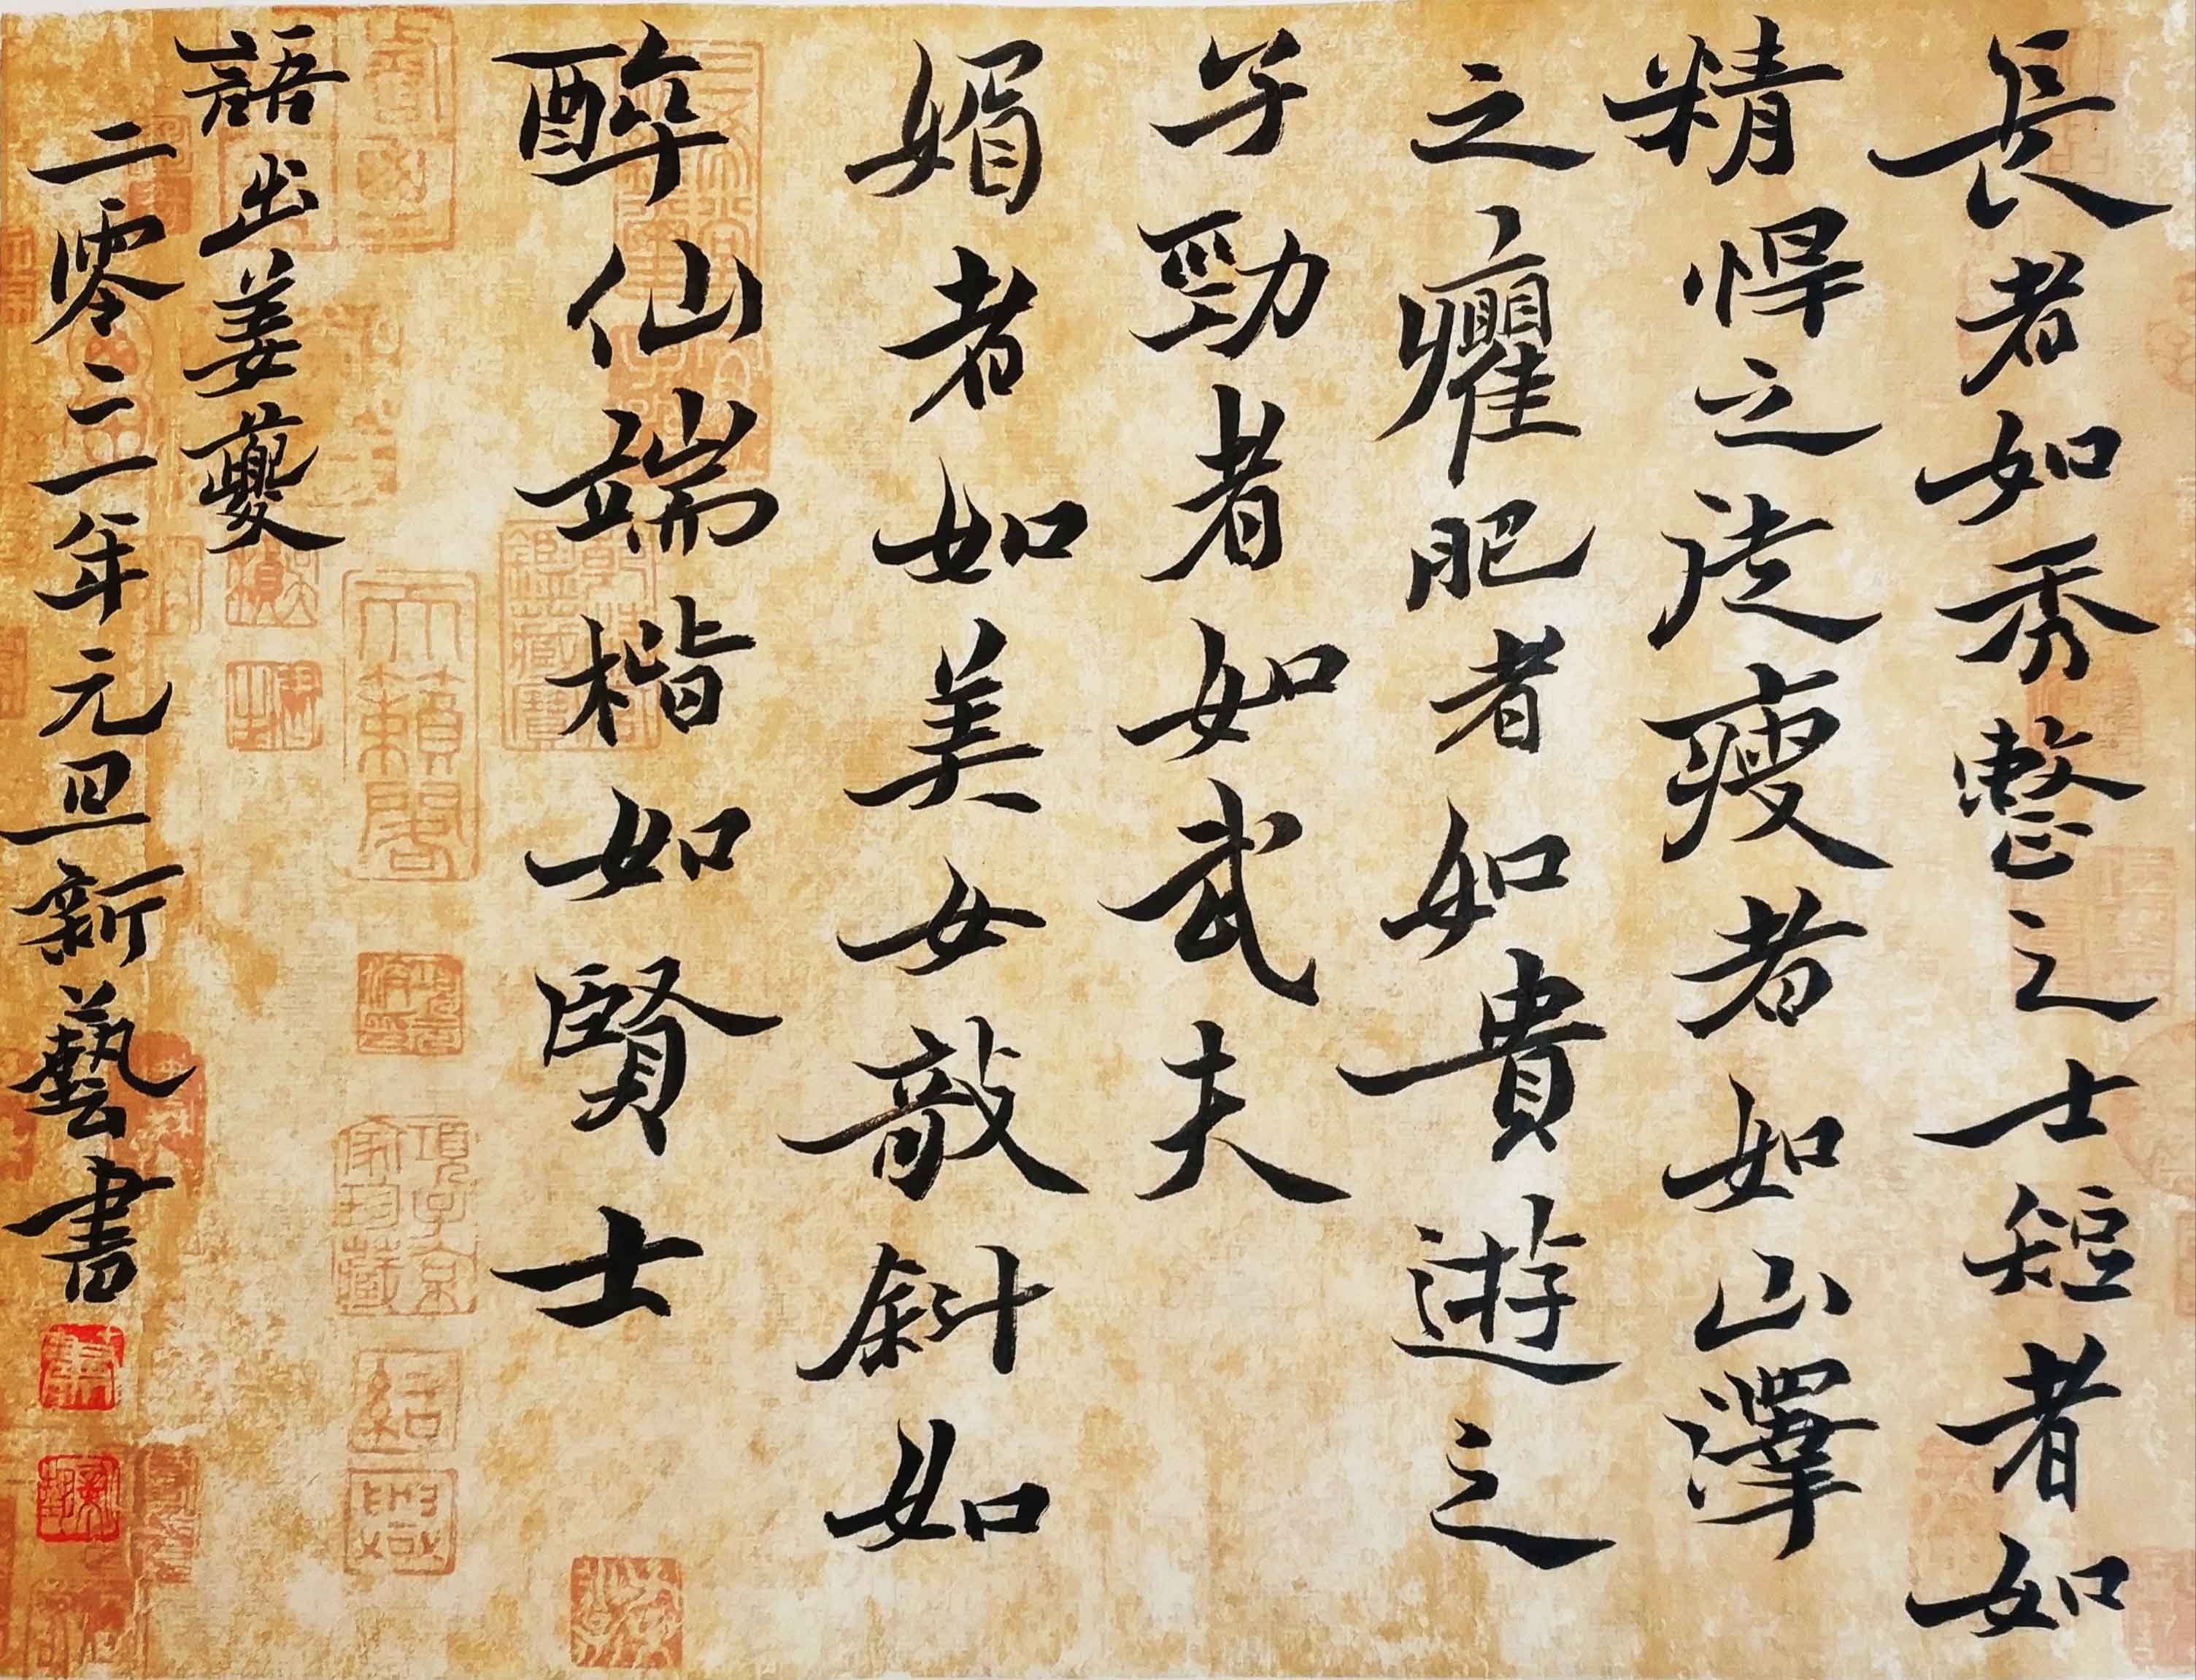 長者如秀整之士短者如
精悍之徒瘦者如山澤
之癯肥者如貴遊之
子勁者如武夫
媚者如美女敧斜如
醉仙端楷如賢士
語出姜夔
二零二一年元旦新藝書
天籟閣
項子京家珍藏